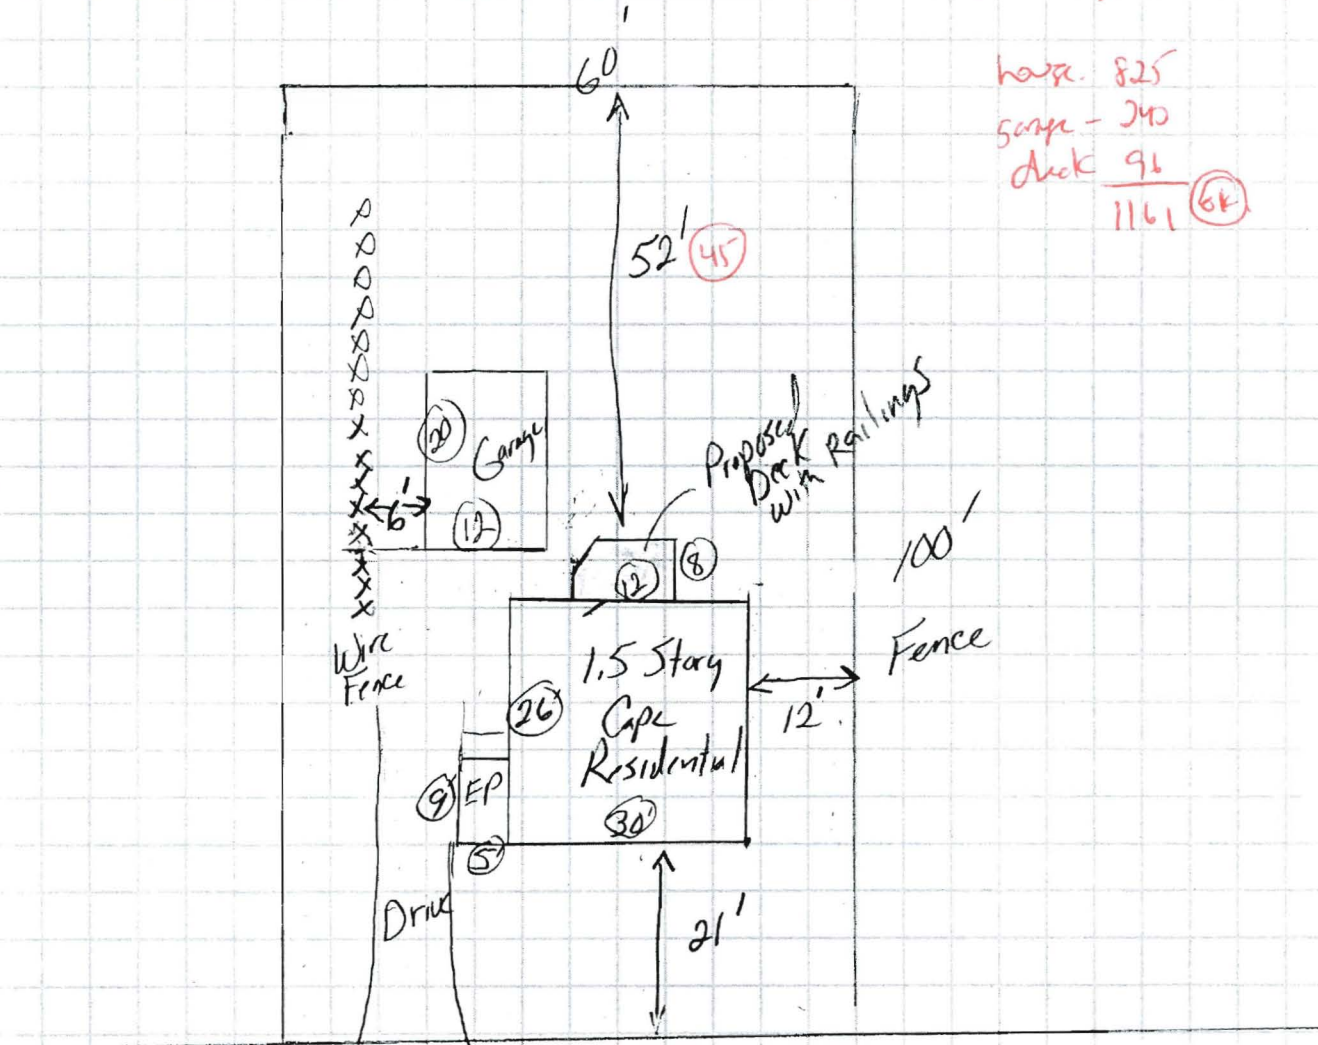 60'
house. 825
garage - 240
deck 96
1161 OK
52' 45
20
Garage
12
6'
Proposed
Deck
with Railings
8
12
100'
Fence
Wire
Fence
1,5 Story
Cape
Residential
26'
30'
12'
9'
EP
5'
Drive
21'